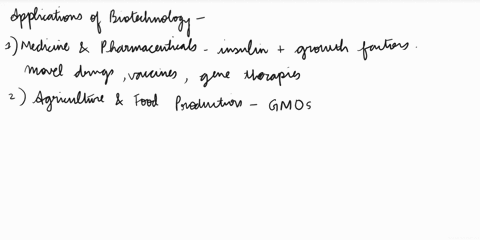 Applications of Biotechnology -
1) Medicine & Pharmaceuticals - insulin + growth factors.
novel drugs, vaccines, gene therapies
2) Agriculture & Food Production - GMOs